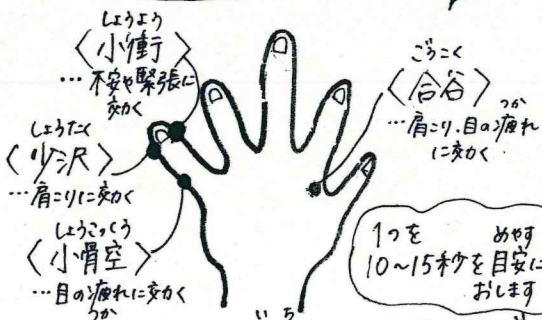 しょうよう
〈小衝〉
…不安や緊張に
効く
しょうたく
〈少沢〉
…肩こりに効く
しょうこっくう
〈小骨空〉
…目の疲れに効く
つか
ごうこく
〈合谷〉
つか
…肩こり、目の疲れ
に効く
1つを めやす
10~15秒を目安に
おします
いち